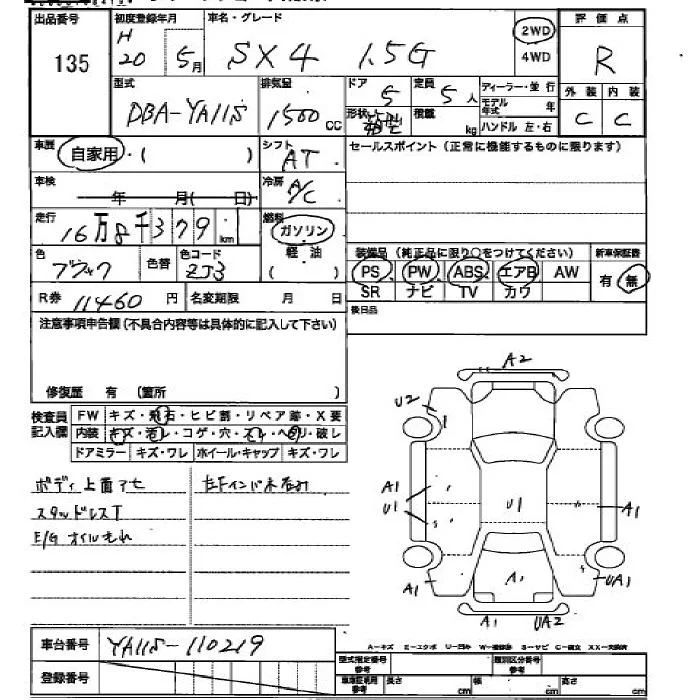 出品番号 初度登録年月 車名・グレード 2WD 4WD 評価点
135 H 20 5月 SX4 1.5G R
型式 排気量 ドア 定員 ディーラー・並行 外装 内装
DBA-YA11S 1500 CC 5 5人 モデル年式 年 C C
形状 積載 kg ハンドル 左・右
車歴 自家用・( ) シフト AT セールスポイント(正常に機能するものに限ります)
車検 年 月( 日) 冷房 A/C
走行 16万8千379 km 燃料 ガソリン
軽油
( )
色 ブラック 色替 色コード ZJ3 装備品(純正品に限り○をつけてください) 新車保証書
PS PW ABS エアB AW 有・無
SR ナビ TV カワ
R券 11460 円 名変期限 月 日 後日品
注意事項申告欄(不具合内容等は具体的に記入して下さい)
修復歴 有 (箇所 )
検査員記入欄 FW キズ・飛石・ヒビ割・リペア跡・X要
内装 キズ・汚レ・コゲ・穴・スレ・ヘタリ・破レ
ドアミラー キズ・ワレ ホイール・キャップ キズ・ワレ
ボディ上面アセ
スタッドレスT
E/G オイルもれ
A2
U2
A1
U1
U1
A1
A1
A1
UA1
A1
UA2
車台番号 YA11S-110219
A-キズ E-エクボ U-凹み W-補修跡 S-サビ C-腐食 XX-交換済
登録番号 型式指定番号 参考 類別区分番号 参考
車庫証明用 参考 長さ cm 幅 cm 高さ cm